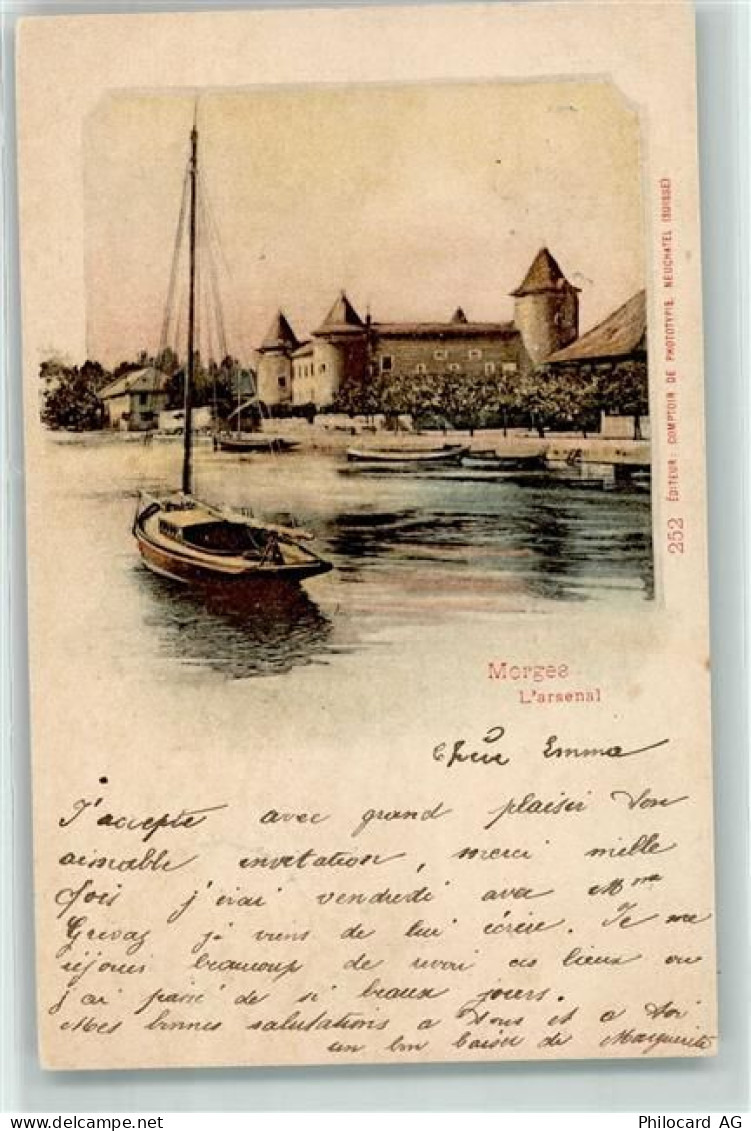 252 EDITEUR: COMPTOIR DE PHOTOTYPIE, NEUCHATEL (SUISSE)
Morges
L'arsenal
Chère Emma
J'accepte avec grand plaisir ton
aimable invitation, merci mille
fois j'irai vendredi avec Mme
Grevaz je viens de lui écrire. Je me
réjouis beaucoup de revoir ces lieux ou
j'ai passé de si beaux jours.
Mes bonnes salutations a tous et a toi
un bon baiser de Marguerite
Philocard AG